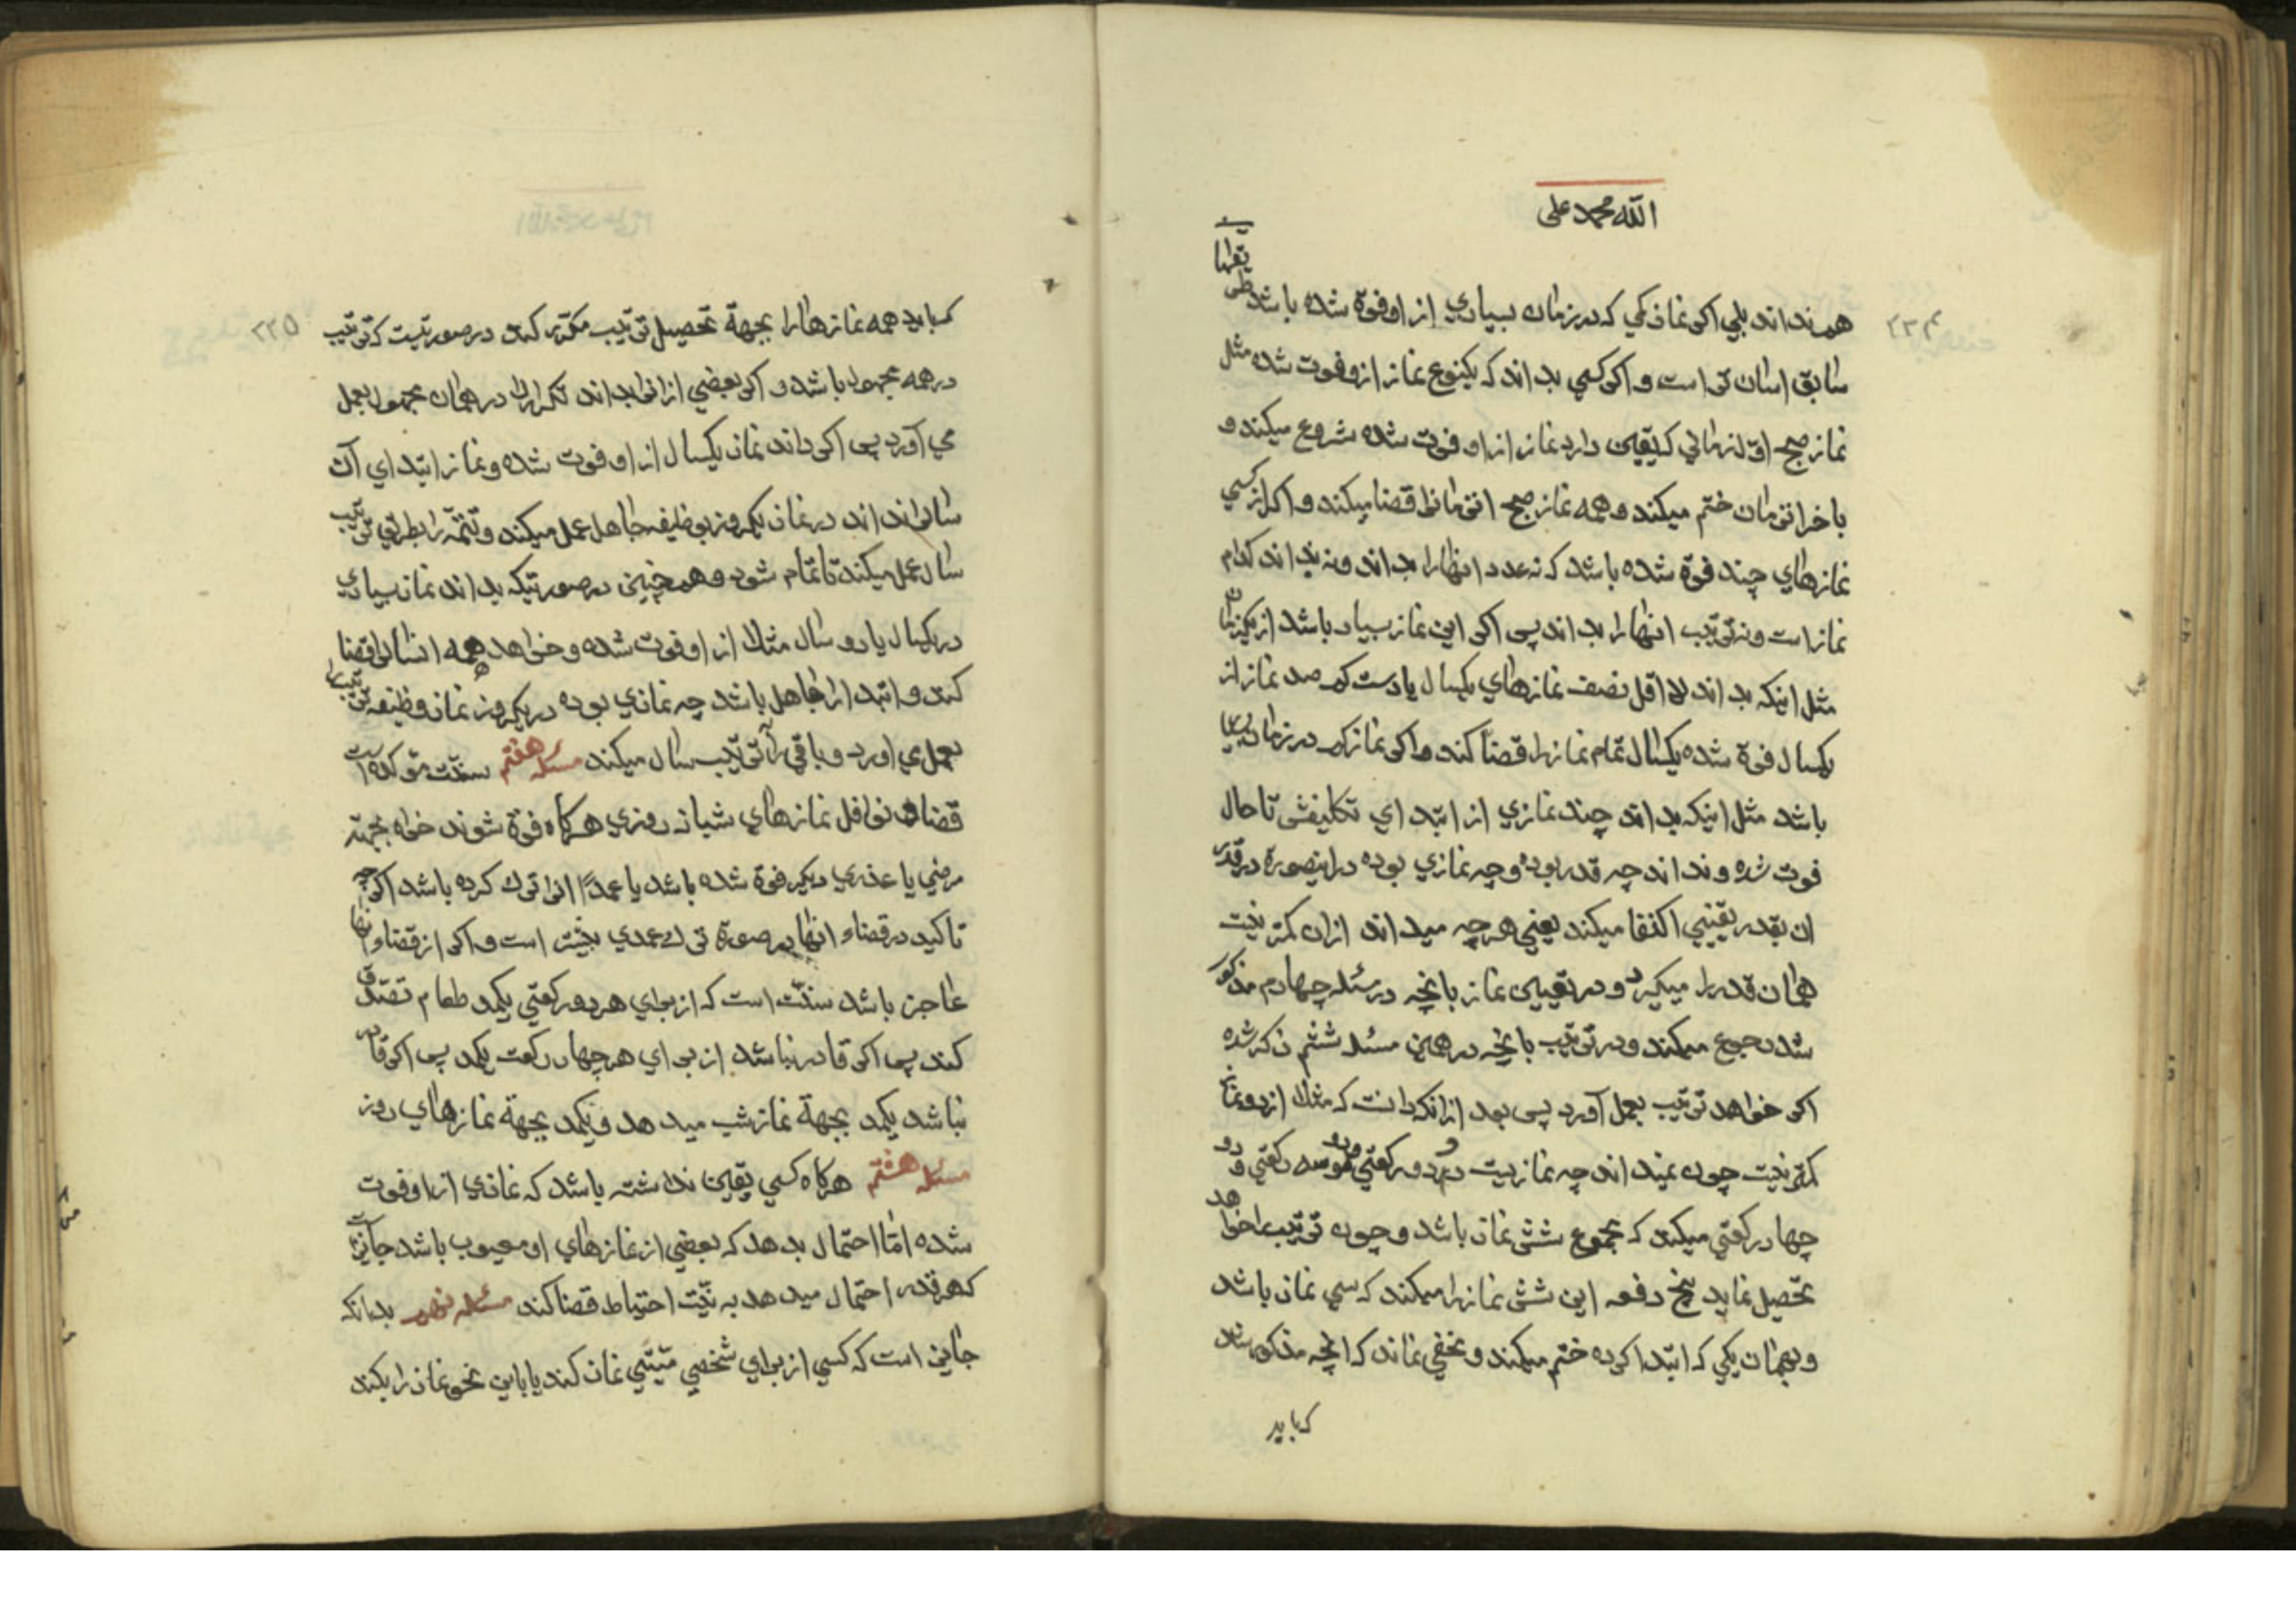 الله محمد علی
۲۲۴
هم نداند بلی اکر نماز کمی که در زمان بسیاری از او فوة شده باشد
سابق اسان تر است و اکر کسی بداند که یکنوع نماز از و فوت شده مثل
نماز صبح اول زمانی که یقین دارد نماز از او فوت شده شروع میکند و
باخر انزمان ختم میکند و همه نماز صبح انزمانرا قضا میکند و اکر از کسی
نمازهای چند فوة شده باشد که نه عدد انها را بداند و نه بداند کدام
نماز است و نه ترتیب انها را بداند پس اکر این نماز بسیار باشد از یکزمان
مثل اینکه بداند لا اقل نصف نمازهای یکسال یا دست کم صد نماز از
یکسال فوة شده یکسال تمام نماز را قضا کند و اکر نماز کم در زمان
باشد مثل اینکه بداند چند نمازی از ابتدای تکلیفش تا حال
فوت شده و نداند چه قدر بوده و چه نمازی بوده در اینصورة در قدر
ان بقدر یقینی اکتفا میکند یعنی هر چه میداند از ان کمتر نیست
همان قدر را میکیرد و در تعیین نماز بانچه در مسئله چهارم مذکور
شد رجوع میکند و در ترتیب بانچه در همین مسئله ششم ذکر شده
اکر خواهد ترتیب بعمل آورد پس بعد از انکه دانست که مثلا از دو نماز
کمتر نیست چون نمیداند چه نمازیست دو دو رکعتی و دو سه رکعتی و دو
چهار رکعتی میکند که مجموع شش نماز باشد و چون ترتیب را خواهد
تحصیل نماید پنج دفعه این شش نماز را میکند که سی نماز باشد
و بهمان یکی که ابتدا کرده ختم میکند و مخفی نماند که انچه مذکور شد
که باید
۲۲۵
که باید همه نمازها را بجهة تحصیل ترتیب مکرر کند در صورتیست که ترتیب
در همه مجهول باشد و اکر بعضی از انرا بداند تکرار را در همان مجهول بعمل
می آورد پس اکر داند نماز یکسال از او فوت شده و نماز ابتدای آن
سال را نداند در نماز یکروز بوظیفه جاهل عمل میکند و تتمه را بطریق ترتیب
سال عمل میکند تا تمام شود و همچنین در صورتیکه بداند نماز بسیاری
در یکسال یا دو سال مثلا از او فوت شده و خواهد همه انسال را قضا
کند و ابتدا را جاهل باشد چه نمازی بوده در یکروز نماز وظیفه ترتیب را
بعمل می اورد و باقی را ترتیب سال میکند مسئله هفتم سنت مؤکده است
قضاء نوافل نمازهای شبانه روزی هرکاه فوة شوند خواه بجهة
مرضی یا عذری دیکر فوة شده باشد یا عمدا انرا ترک کرده باشد اکرچه
تاکید در قضاء انها در صورة ترک عمدی بیشتر است و اکر از قضاء انها
عاجز باشد سنت است که از برای هر دو رکعتی یکمد طعام تصدق
کند پس اکر قادر نباشد از برای هر چهار رکعت یکمد پس اکر قادر
نباشد یکمد بجهة نماز شب میدهد و یکمد بجهة نمازهای روز
مسئله هشتم هرکاه کسی یقین نداشته باشد که نمازی از او فوت
شده اما احتمال بدهد که بعضی از نمازهای او معیوب باشد جایز است
که هر قدر احتمال میدهد به نیت احتیاط قضا کند مسئله نهم بدانکه
جایز است که کسی از برای شخصی میتی نماز کند یا باین نحو نماز را بکند